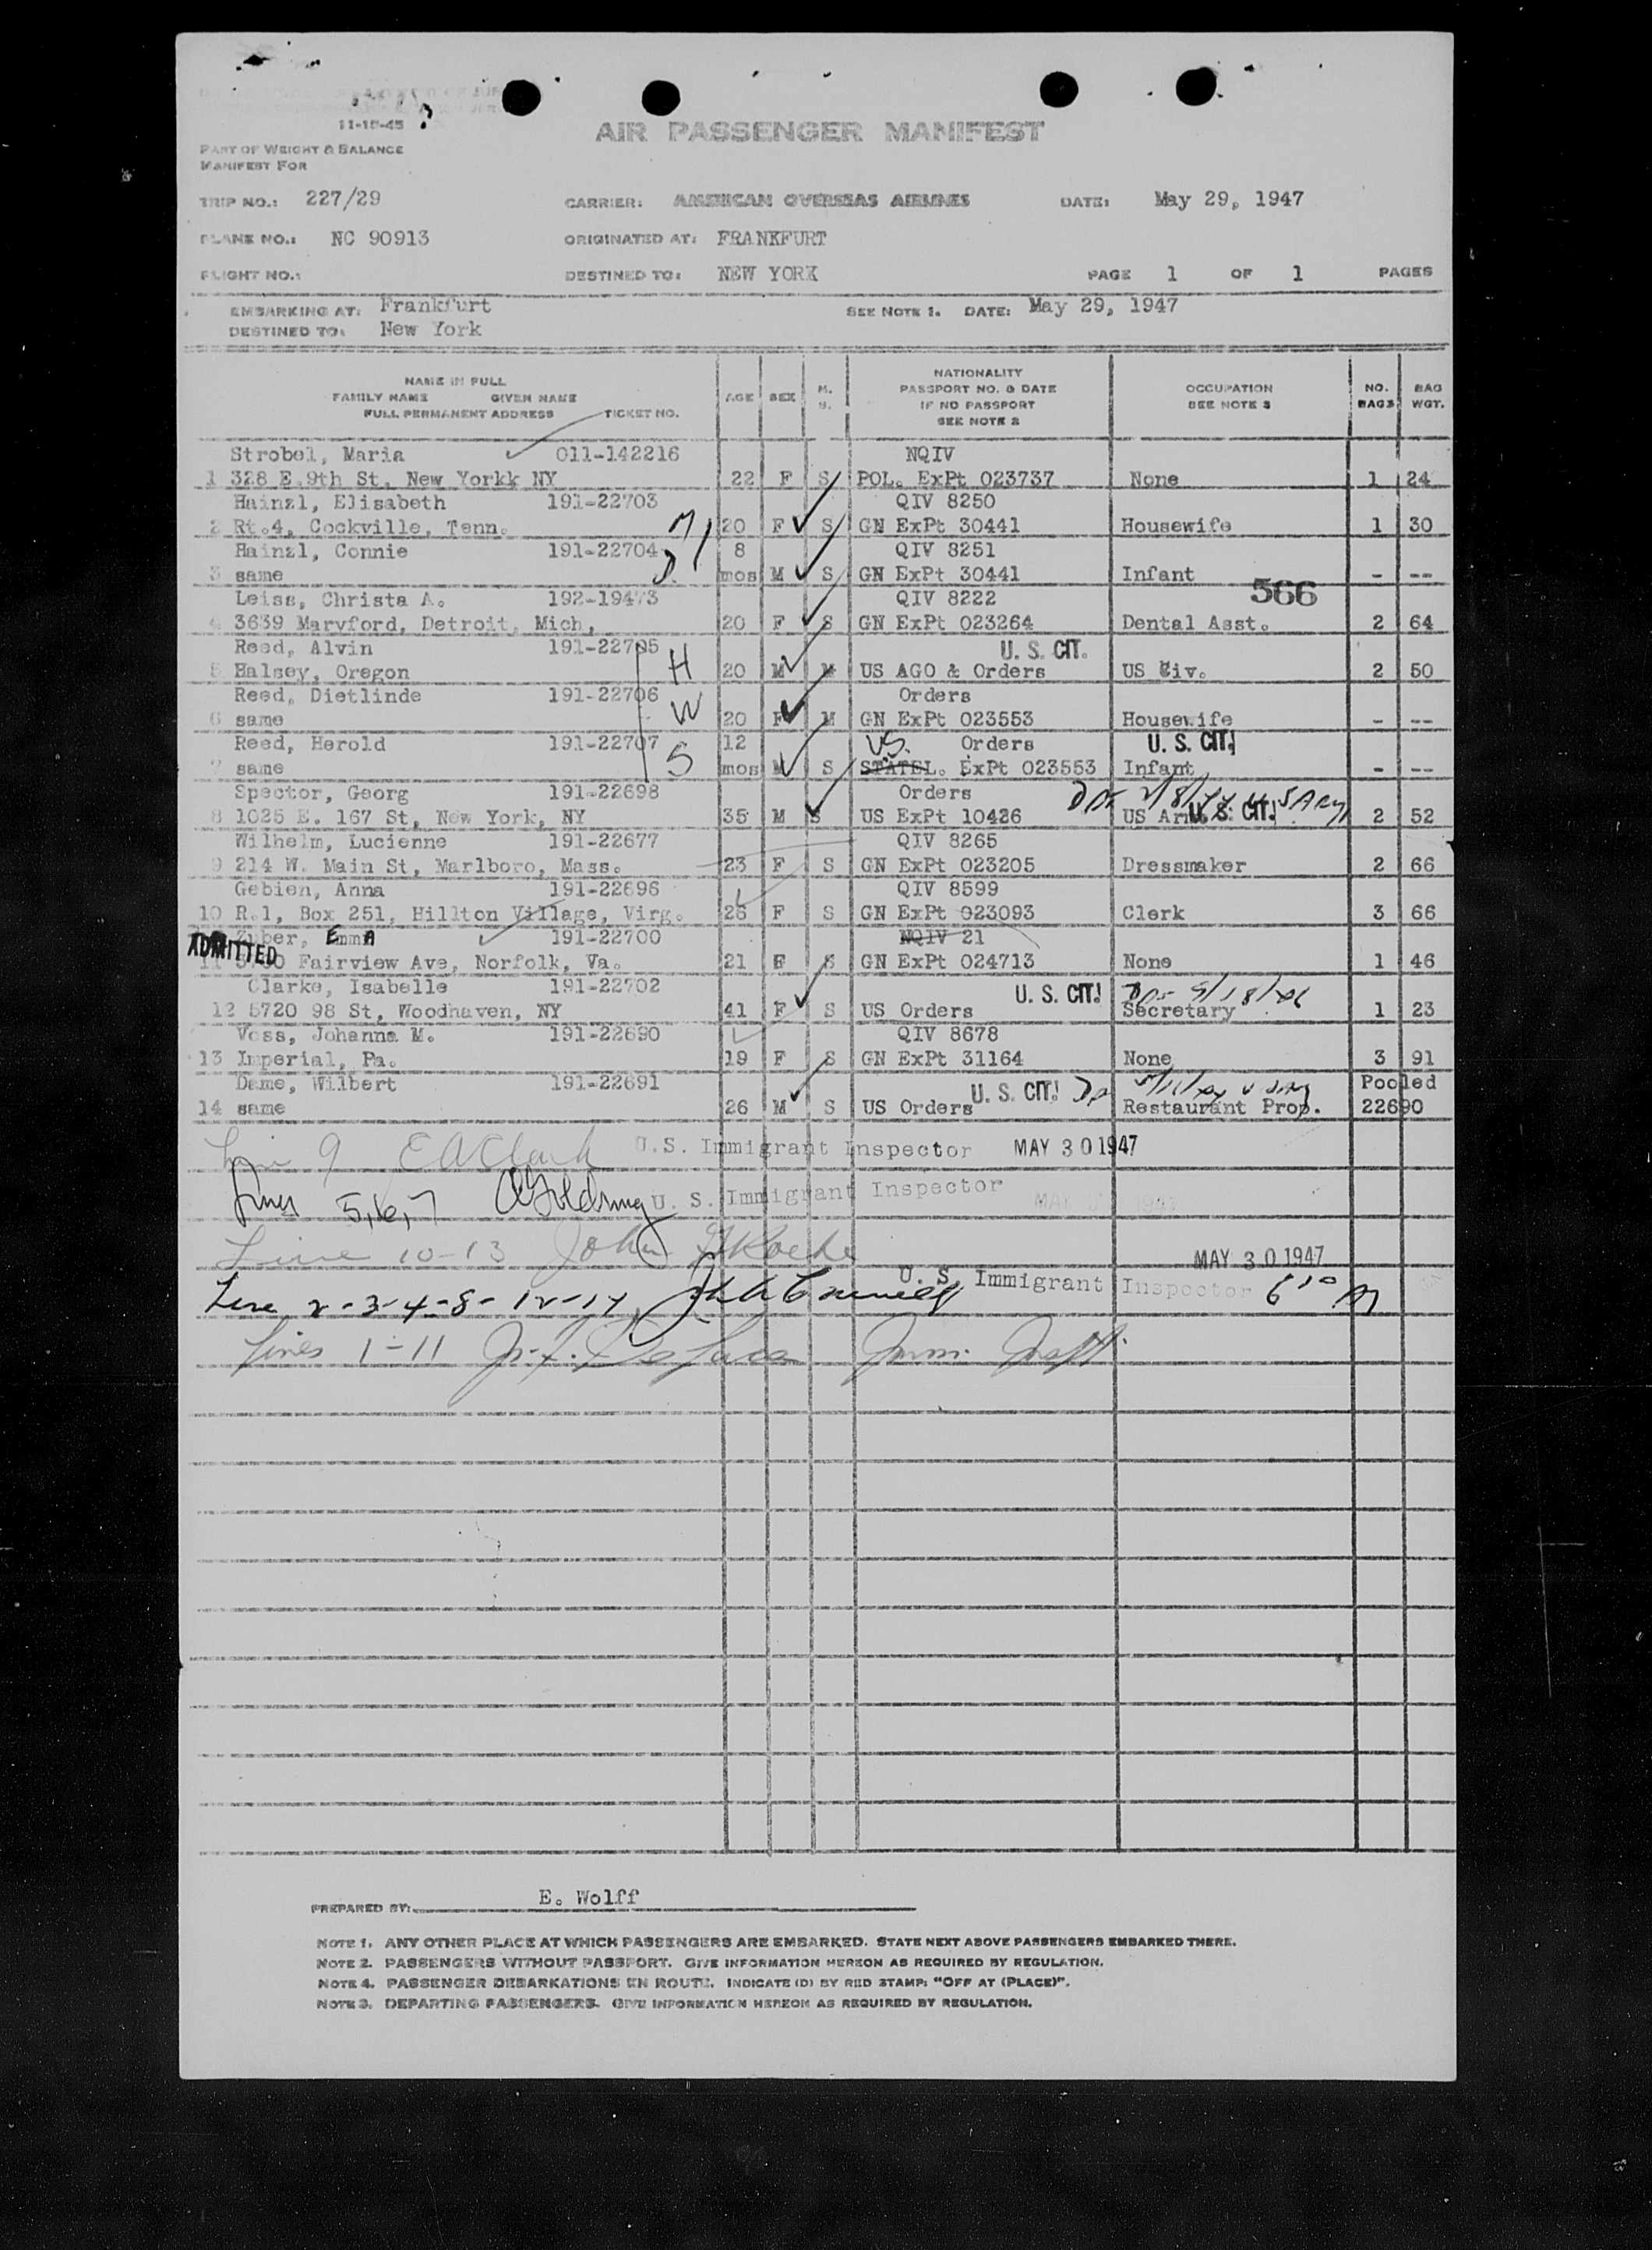 11-15-45
AIR PASSENGER MANIFEST
PART OF WEIGHT & BALANCE
MANIFEST FOR
TRIP NO.: 227/29 CARRIER: AMERICAN OVERSEAS AIRLINES DATE: May 29, 1947
PLANE NO.: NC 90913 ORIGINATED AT: FRANKFURT
FLIGHT NO.: DESTINED TO: NEW YORK PAGE 1 OF 1 PAGES
EMBARKING AT: Frankfurt SEE NOTE 1. DATE: May 29, 1947
DESTINED TO: New York
NAME IN FULL
FAMILY NAME GIVEN NAME
FULL PERMANENT ADDRESS TICKET NO.
AGE SEX M. S.
NATIONALITY
PASSPORT NO. & DATE
IF NO PASSPORT
SEE NOTE 2
OCCUPATION
SEE NOTE 3
NO. BAGS
BAG WGT.
Strobel, Maria 011-142216 NQIV
1 328 E.9th St, New Yorkk NY 22 F S POL. ExPt 023737 None 1 24
Hainzl, Elisabeth 191-22703 QIV 8250
2 Rt.4, Cockville, Tenn. M 20 F S GN ExPt 30441 Housewife 1 30
Hainzl, Connie 191-22704 8 QIV 8251
3 same D mos M S GN ExPt 30441 Infant - --
566
Leiss, Christa A. 192-19473 QIV 8222
4 3639 Maryford, Detroit, Mich, 20 F S GN ExPt 023264 Dental Asst. 2 64
Reed, Alvin 191-22705 U. S. CIT.
5 Halsey, Oregon H 20 M M US AGO & Orders US Civ. 2 50
Reed, Dietlinde 191-22706 Orders
6 same W 20 F M GN ExPt 023553 Housewife - --
Reed, Herold 191-22707 12 US. Orders U. S. CIT.
7 same S mos M S STATEL. ExPt 023553 Infant - --
Spector, Georg 191-22698 Orders
8 1025 E. 167 St, New York, NY 35 M S US ExPt 10426 US Arm U. S. CIT. 2 52
Wilhelm, Lucienne 191-22677 QIV 8265
9 214 W. Main St, Marlboro, Mass. 23 F S GN ExPt 023205 Dressmaker 2 66
Gebien, Anna 191-22696 QIV 8599
10 R.1, Box 251, Hillton Village, Virg. 26 F S GN ExPt 023093 Clerk 3 66
Zuber, EmmA 191-22700 NQIV 21
ADMITTED
11 Fairview Ave, Norfolk, Va. 21 F S GN ExPt 024713 None 1 46
Clarke, Isabelle 191-22702 U. S. CIT!
12 5720 98 St, Woodhaven, NY 41 F S US Orders Secretary 1 23
Voss, Johanna M. 191-22690 QIV 8678
13 Imperial, Pa. 19 F S GN ExPt 31164 None 3 91
Dame, Wilbert 191-22691 U. S. CIT! Pooled
14 same 26 M S US Orders Restaurant Prop. 22690
Line 9 E A Clark U.S. Immigrant Inspector MAY 30 1947
Lines 5,6,7 Goldring U. S. Immigrant Inspector
Line 10-13 John Roche MAY 30 1947
U. S. Immigrant Inspector
Line 2-3-4-8-12-14
Lines 1-11 Imm. Inspt.
PREPARED BY: E. Wolff
NOTE 1. ANY OTHER PLACE AT WHICH PASSENGERS ARE EMBARKED. STATE NEXT ABOVE PASSENGERS EMBARKED THERE.
NOTE 2. PASSENGERS WITHOUT PASSPORT. GIVE INFORMATION HEREON AS REQUIRED BY REGULATION.
NOTE 4. PASSENGER DEBARKATIONS EN ROUTE. INDICATE (D) BY RED STAMP: "OFF AT (PLACE)".
NOTE 3. DEPARTING PASSENGERS. GIVE INFORMATION HEREON AS REQUIRED BY REGULATION.